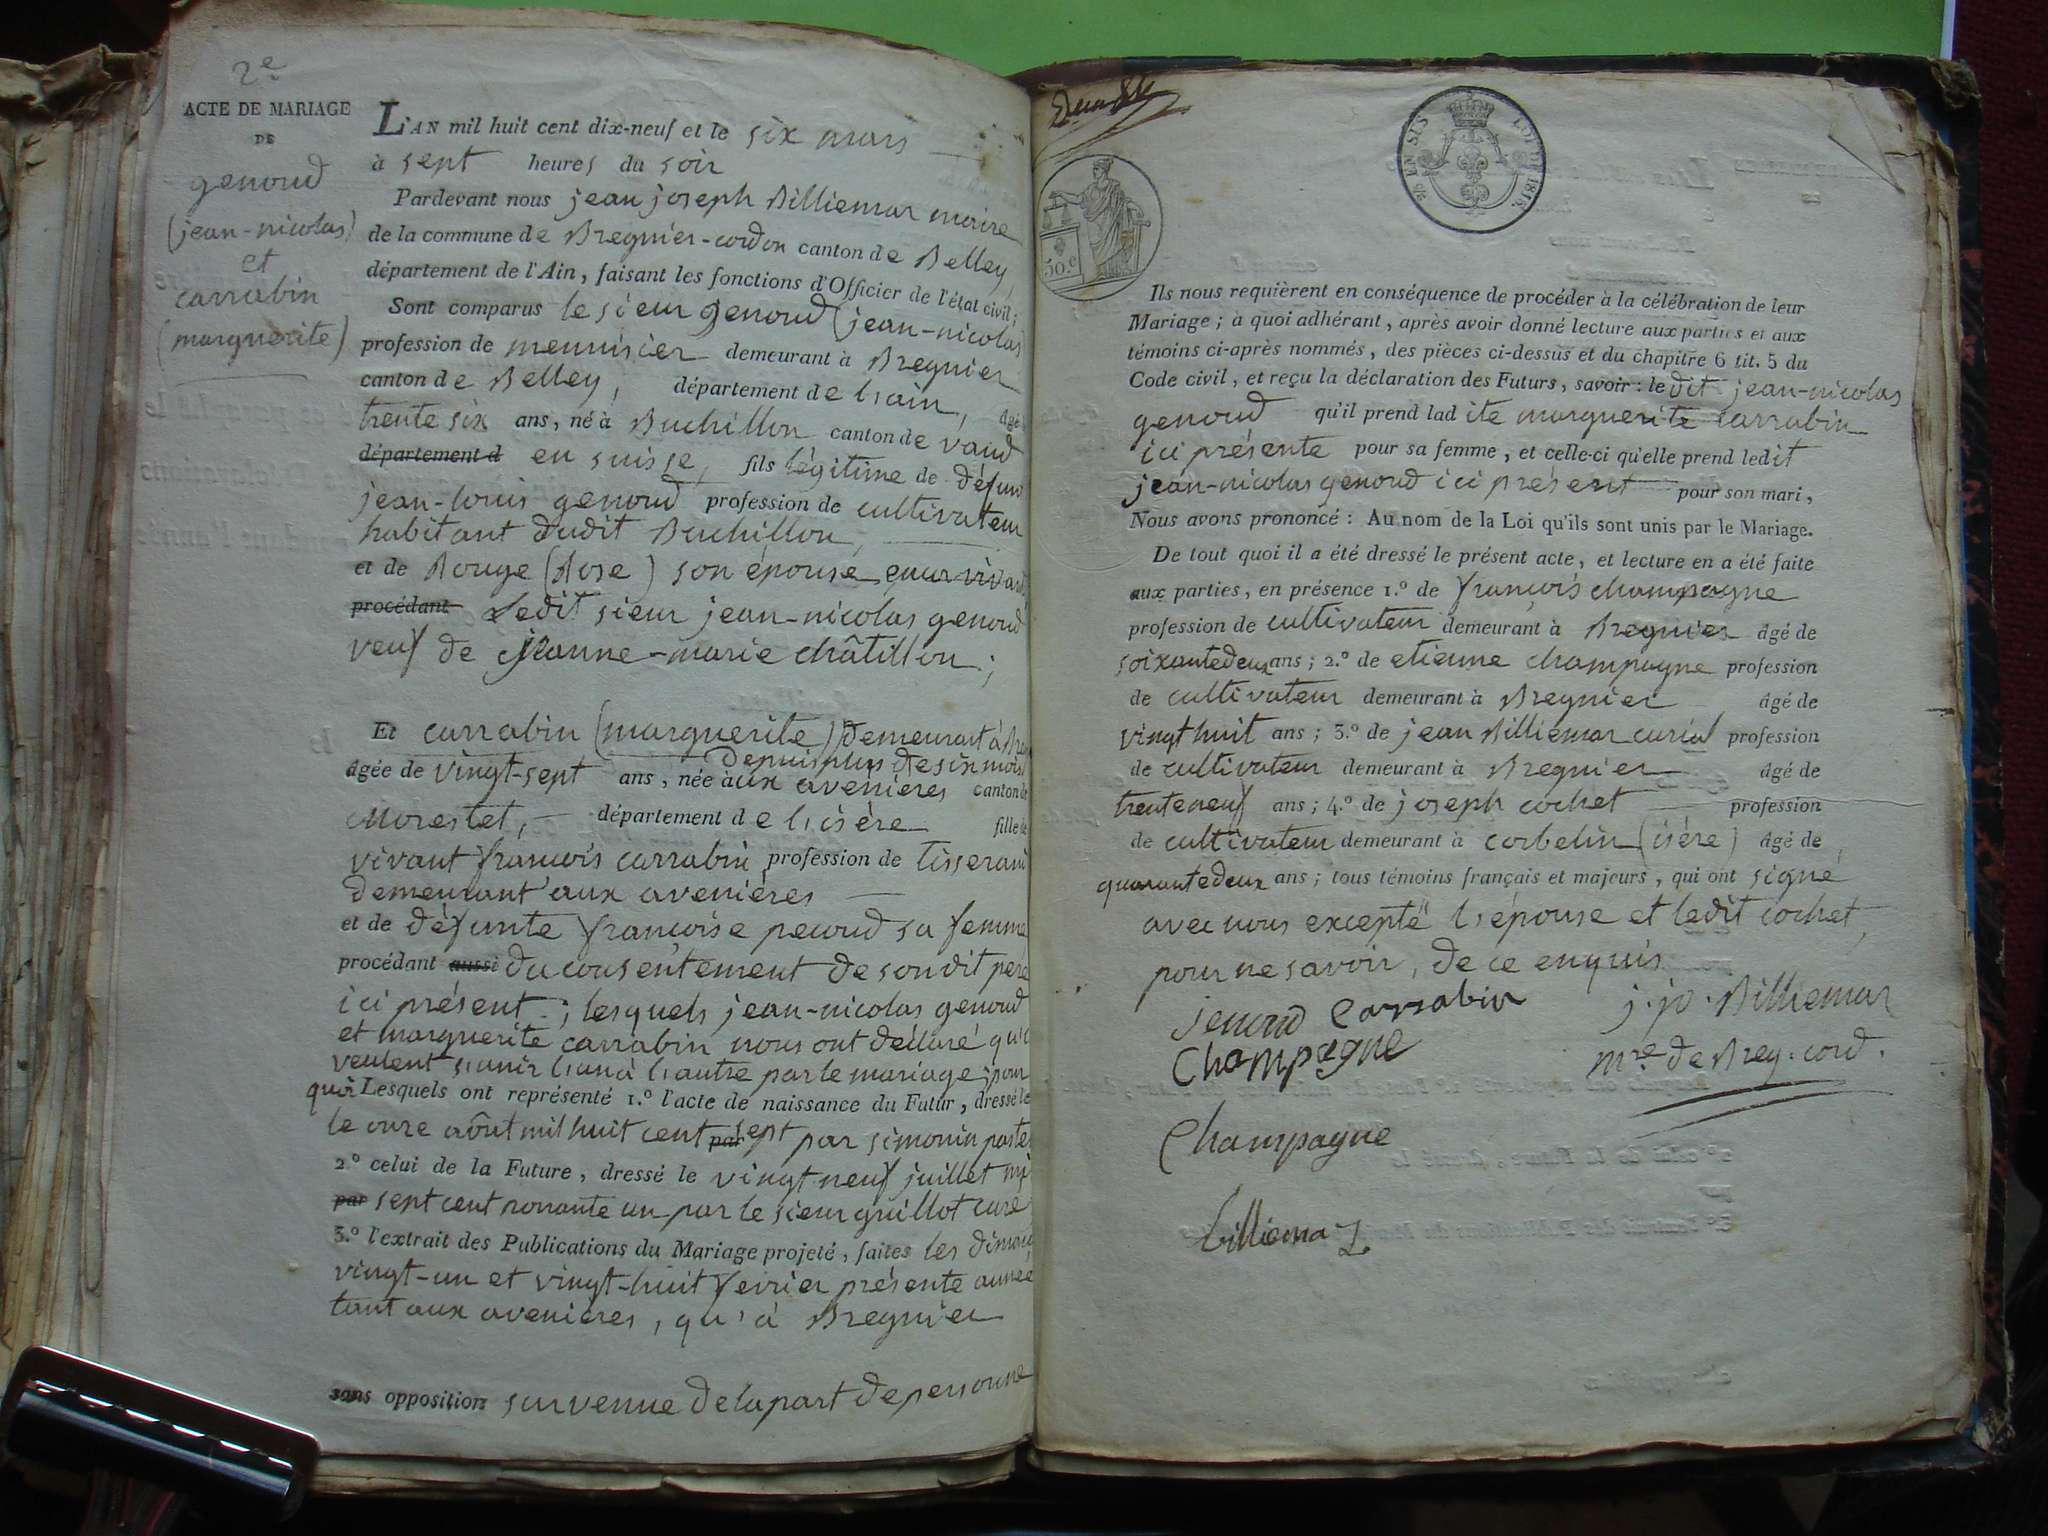 2e
ACTE DE MARIAGE
DE
genoud
(jean-nicolas)
et
carrabin
(marguerite)
L'AN mil huit cent dix-neuf et le six mars
à sept heures du soir
Pardevant nous jean joseph Billiemar maire
de la commune de Bregnier-cordon canton de Belley,
département de l'Ain, faisant les fonctions d'Officier de l'état civil;
Sont comparus le sieur genoud (jean-nicolas)
profession de menuisier demeurant à Bregnier
canton de Belley, département de l'ain, âgé
trente six ans, né à Buchillon canton de vaud
département d en suisse, fils légitime de défunt
jean-louis genoud profession de cultivateur
habitant dudit Buchillon,
et de Rouge (Rose) son épouse, quand vivait
procédant Ledit sieur jean-nicolas genoud
veuf de jeanne-marie châtillon;
Et carrabin (marguerite) demeurant à Bre
depuis plus de six mois
âgée de vingt-sept ans, née à aux avenieres canton de
Morestel, département de l'isère fille de
vivant françois carrabin profession de tisserand
demeurant aux avenières
et de défunte françoise pecoud sa femme
procédant aussi du consentement de sondit pere
ici présent; lesquels jean-nicolas genoud
et marguerite carrabin nous ont déclaré qu'i
veulent s'unir l'un à l'autre par le mariage; pour
quoi Lesquels ont représenté 1.º l'acte de naissance du Futur, dressé le
le onze aôut mil huit cent par sept par simonin paste
2.º celui de la Future, dressé le vingt neuf juillet mil
par sept cent nonante un par le sieur guillot curé
3.º l'extrait des Publications du Mariage projeté, faites les dimanc
vingt-un et vingt-huit fevrier présente année
tant aux avenieres, qu'à Bregnier
sans opposition survenue de la part de personne
50.c
LOI DE 1816
Ils nous requièrent en conséquence de procéder à la célébration de leur
Mariage; à quoi adhérant, après avoir donné lecture aux parties et aux
témoins ci-après nommés, des pièces ci-dessus et du chapitre 6 tit. 5 du
Code civil, et reçu la déclaration des Futurs, savoir: le dit jean-nicolas
genoud qu'il prend lad ite marguerite carrabin
ici présente pour sa femme, et celle-ci qu'elle prend ledit
jean-nicolas genoud ici présent pour son mari,
Nous avons prononcé: Au nom de la Loi qu'ils sont unis par le Mariage.
De tout quoi il a été dressé le présent acte, et lecture en a été faite
aux parties, en présence 1.º de françois champagne
profession de cultivateur demeurant à Bregnier âgé de
soixante deux ans; 2.º de etienne champagne profession
de cultivateur demeurant à Bregnier âgé de
vingt huit ans; 3.º de jean Billiemar curial profession
de cultivateur demeurant à Bregnier âgé de
trente neuf ans; 4.º de joseph cochet profession
de cultivateur demeurant à corbelin (isère) âgé de
quarante deux ans; tous témoins français et majeurs, qui ont signé
avec nous excepté l'épouse et ledit cochet,
pour ne savoir, de ce enquis
jenoud Carrabin j. jo. Billiemar
Champagne mre de Breg. cord.
Champagne
billiemaz